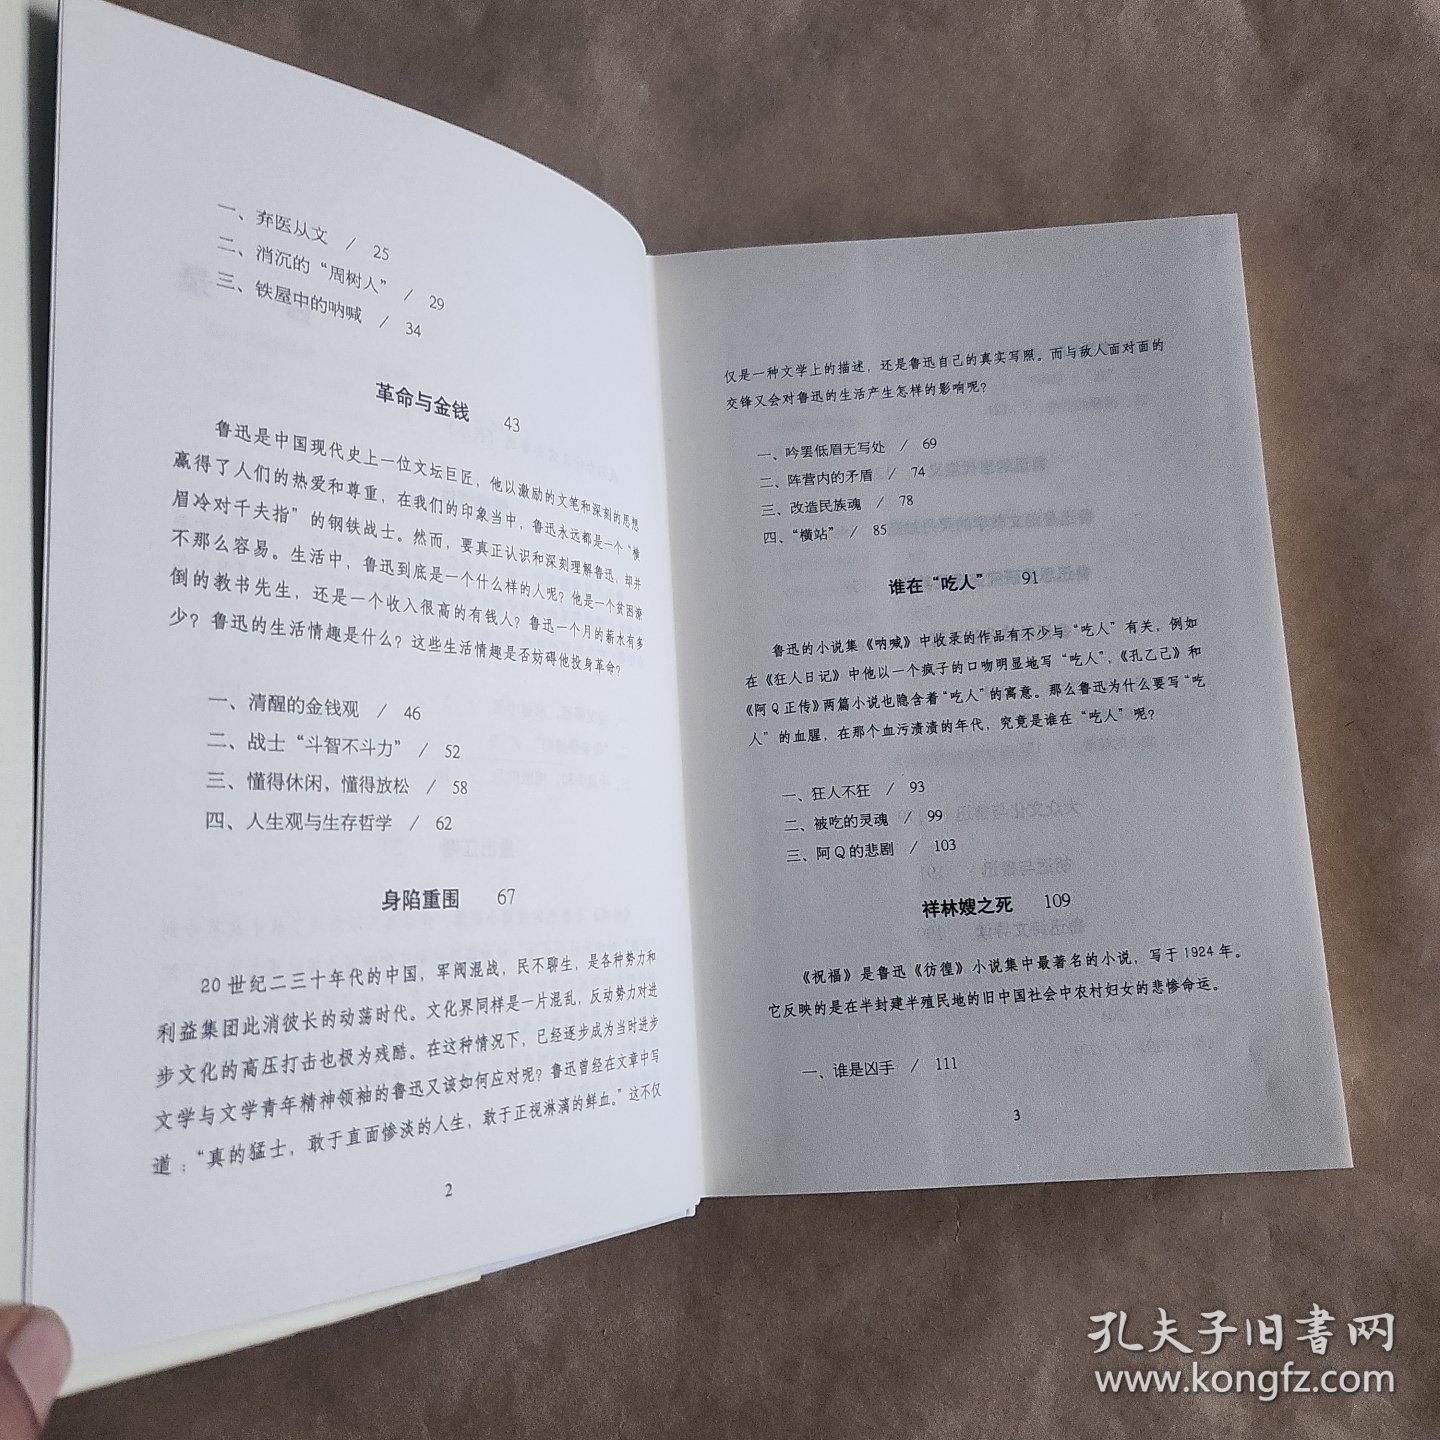 一、弃医从文 / 25
二、消沉的“周树人” / 29
三、铁屋中的呐喊 / 34
革命与金钱 43
鲁迅是中国现代史上一位文坛巨匠，他以激励的文笔和深刻的思想
赢得了人们的热爱和尊重，在我们的印象当中，鲁迅永远都是一个“横
眉冷对千夫指”的钢铁战士。然而，要真正认识和深刻理解鲁迅，却并
不那么容易。生活中，鲁迅到底是一个什么样的人呢？他是一个贫困潦
倒的教书先生，还是一个收入很高的有钱人？鲁迅一个月的薪水有多
少？鲁迅的生活情趣是什么？这些生活情趣是否妨碍他投身革命？
一、清醒的金钱观 / 46
二、战士“斗智不斗力” / 52
三、懂得休闲，懂得放松 / 58
四、人生观与生存哲学 / 62
身陷重围 67
20世纪二三十年代的中国，军阀混战，民不聊生，是各种势力和
利益集团此消彼长的动荡时代。文化界同样是一片混乱，反动势力对进
步文化的高压打击也极为残酷。在这种情况下，已经逐步成为当时进步
文学与文学青年精神领袖的鲁迅又该如何应对呢？鲁迅曾经在文章中写
道：“真的猛士，敢于直面惨淡的人生，敢于正视淋漓的鲜血。”这不仅
2
仅是一种文学上的描述，还是鲁迅自己的真实写照。而与敌人面对面的
交锋又会对鲁迅的生活产生怎样的影响呢？
一、吟罢低眉无写处 / 69
二、阵营内的矛盾 / 74
三、改造民族魂 / 78
四、“横站” / 85
谁在“吃人” 91
鲁迅的小说集《呐喊》中收录的作品有不少与“吃人”有关，例如
在《狂人日记》中他以一个疯子的口吻明显地写“吃人”，《孔乙己》和
《阿Q正传》两篇小说也隐含着“吃人”的寓意。那么鲁迅为什么要写“吃
人”的血腥，在那个血污渍渍的年代，究竟是谁在“吃人”呢？
一、狂人不狂 / 93
二、被吃的灵魂 / 99
三、阿Q的悲剧 / 103
祥林嫂之死 109
《祝福》是鲁迅《彷徨》小说集中最著名的小说，写于1924年。
它反映的是在半封建半殖民地的旧中国社会中农村妇女的悲惨命运。
一、谁是凶手 / 111
3
孔夫子旧书网
www.kongfz.com